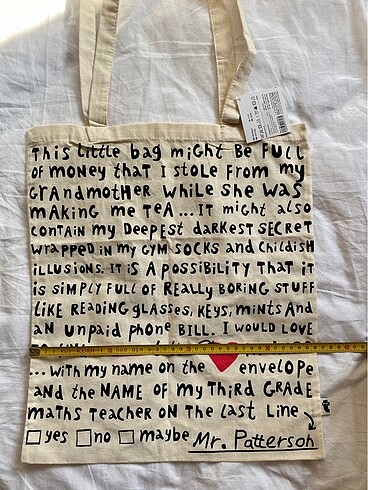 This little bag might be full
of money that I stole from my
grandmother while she was
making me tea... It might also
contain my deepest darkest secret
wrapped in my gym socks and childish
illusions. It is a possibility that it
is simply full of really boring stuff
like reading glasses, keys, mints and
an unpaid phone bill. I would love
...with my name on the ♥ envelope
and the name of my third grade
maths teacher on the last line
□ yes □ no □ maybe Mr. Patterson